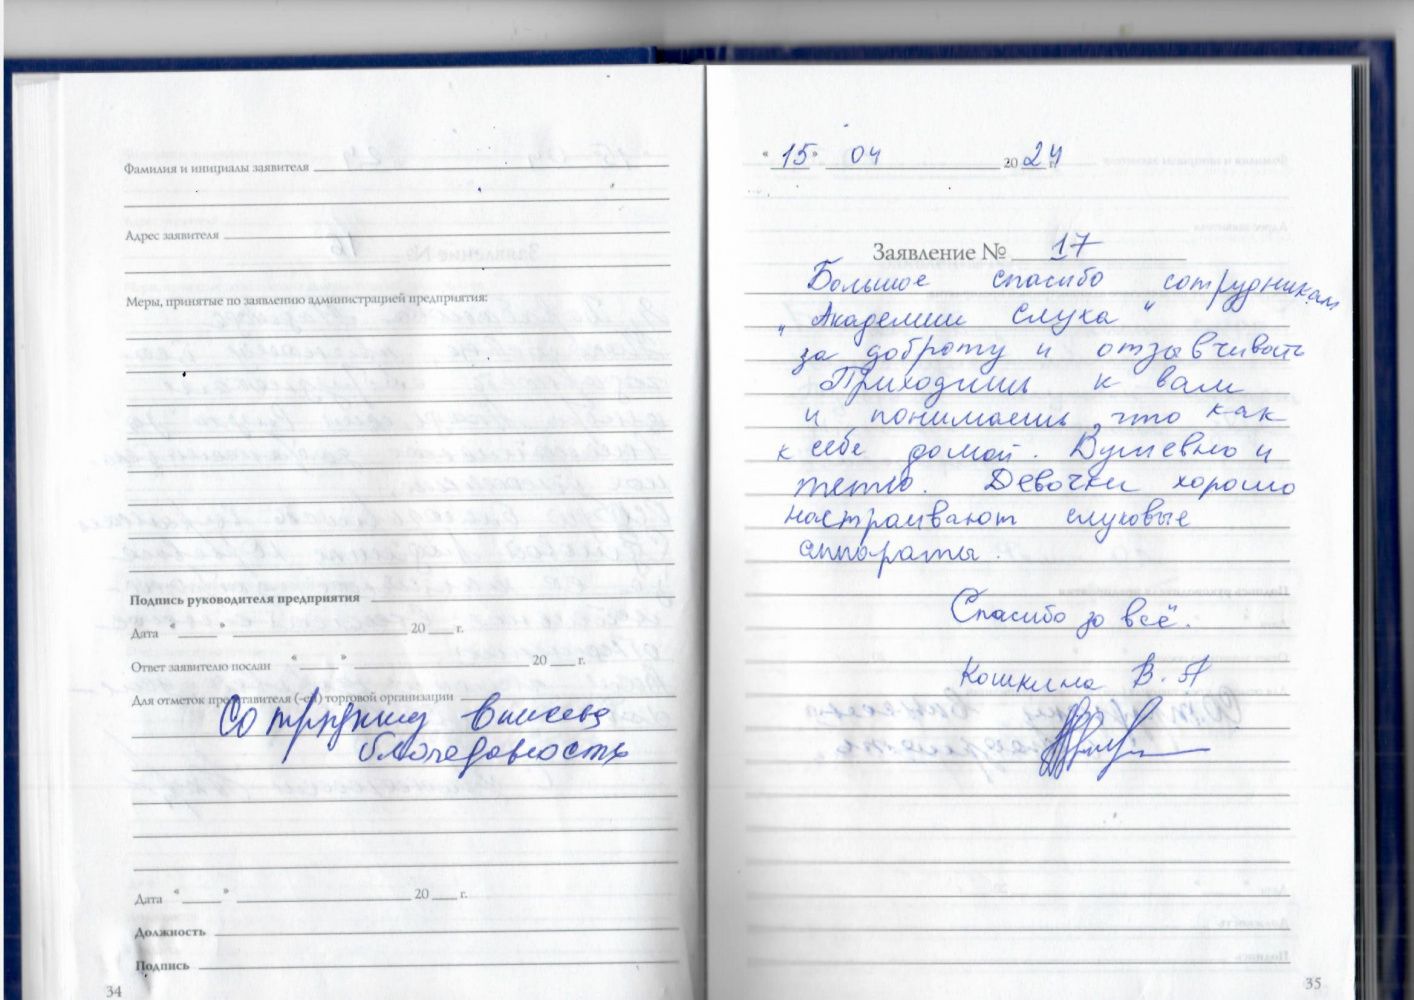 Фамилия и инициалы заявителя
Адрес заявителя
Меры, принятые по заявлению администрацией предприятия:
Подпись руководителя предприятия
Дата "____" ____ 20 ___ г.
Ответ заявителю послан "____" ____ 20 ___ г.
Для отметок представителя (-ей) торговой организации
Сотруднику внесена
благодарность
Дата "____" ____ 20 ___ г.
Должность
Подпись
34
"15" 04 2024 г.
Заявление № 17
Большое спасибо сотрудникам
"Академии Слуха"
за доброту и отзывчивость
Приходишь к вам
и понимаешь, что как
к себе домой. Душевно и
тепло. Девочки хорошо
настраивают слуховые
аппараты.
Спасибо за всё.
Кошкина В. А
35